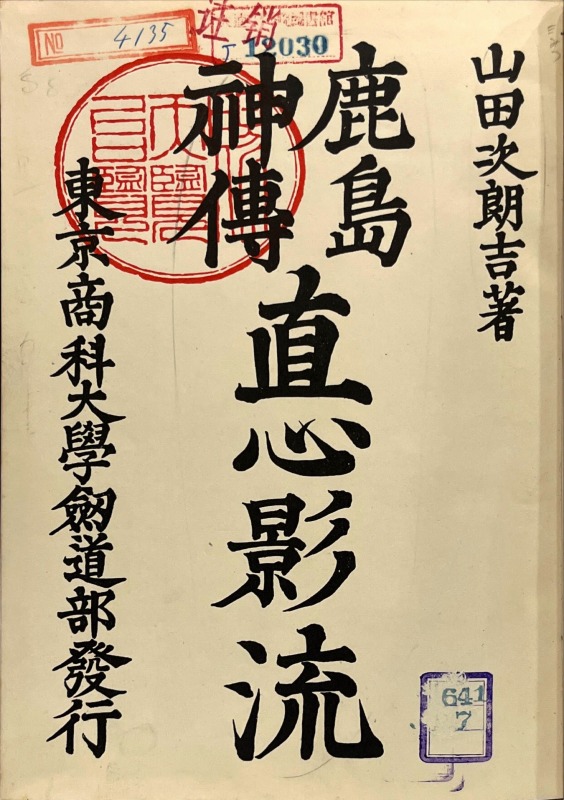 山田次朗吉著
鹿島
神傳
直心影流
東京商科大學劍道部發行
NO 4135
註销
J 12030
641
7